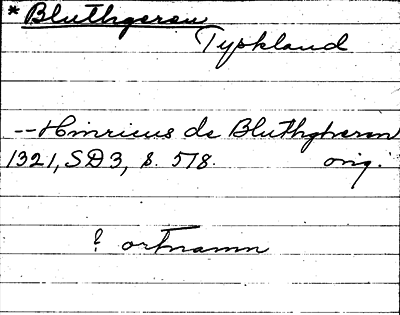 * Bluthgersen
Tyskland
-- Hinricus de Bluthghersen
1321, SD3, S. 578. orig.
? ortnamn